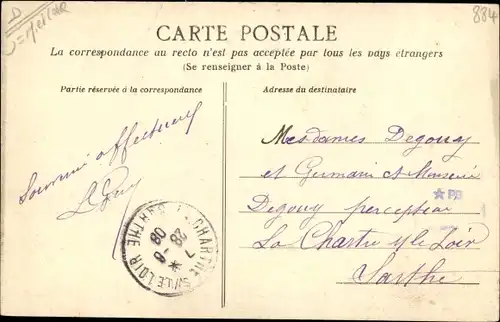 884
CARTE POSTALE
La correspondance au recto n'est pas acceptée par tous les pays étrangers
(Se renseigner à la Poste)
Partie réservée à la correspondance
Adresse du destinataire
Souvenir affectueux
Mesdames Degouy
et Germain et Monsieur
Degouy percepteur
La Chartre s/le Loir
Sarthe
PB
LA CHARTRE S/LE LOIR SARTHE
7 28 -8 08